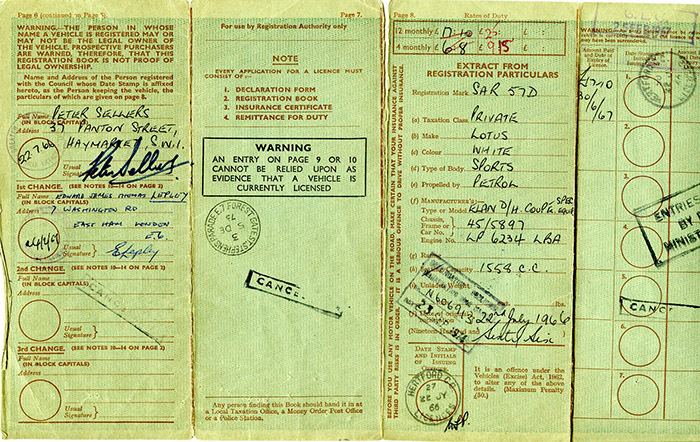 Page 6 (continued on Page 5)
WARNING.—THE PERSON IN WHOSE
NAME A VEHICLE IS REGISTERED MAY OR
MAY NOT BE THE LEGAL OWNER OF
THE VEHICLE. PROSPECTIVE PURCHASERS
ARE WARNED, THEREFORE, THAT THIS
REGISTRATION BOOK IS NOT PROOF OF
LEGAL OWNERSHIP.
Name and Address of the Person registered
with the Council whose Date Stamp is affixed
hereto, as the Person keeping the vehicle, the
particulars of which are given on page 8.
Full Name PETER SELLERS
(IN BLOCK CAPITALS)
Address 37 PANTON STREET,
HAYMARKET, S.W.1.
22.7.66
Usual
Signature Peter Sellers
1st CHANGE. (SEE NOTES 10—14 ON PAGE 2)
Full Name EDWARD JAMES THOMAS LEPLEY
(IN BLOCK CAPITALS)
Address 7 WASHINGTON RD
EAST HAM LONDON
E.6.
Usual
Signature E Lepley
2nd CHANGE. (SEE NOTES 10—14 ON PAGE 2)
Full Name
(IN BLOCK CAPITALS)
Address
Usual
Signature
3rd CHANGE. (SEE NOTES 10—14 ON PAGE 2)
Full Name
(IN BLOCK CAPITALS)
Address
Usual
Signature
Page 7.
For use by Registration Authority only
NOTE
EVERY APPLICATION FOR A LICENCE MUST
CONSIST OF:—
1. DECLARATION FORM
2. REGISTRATION BOOK
3. INSURANCE CERTIFICATE
4. REMITTANCE FOR DUTY
WARNING
AN ENTRY ON PAGE 9 OR 10
CANNOT BE RELIED UPON AS
EVIDENCE THAT A VEHICLE IS
CURRENTLY LICENSED
FOREST GATE
5 DE
75
CANCE
Any person finding this Book should hand it in at
a Local Taxation Office, a Money Order Post Office
or a Police Station.
BEFORE YOU USE ANY MOTOR VEHICLE ON THE ROAD, MAKE CERTAIN THAT YOUR INSURANCE AGAINST
THIRD PARTY RISKS IS IN ORDER. IT IS A SERIOUS OFFENCE TO DRIVE WITHOUT PROPER INSURANCE.
Page 8. Rates of Duty
12 monthly £ 17-10 £
4 monthly £ 6-8 £ 9 15
EXTRACT FROM
REGISTRATION PARTICULARS
Registration Mark SAR 57D
(a) Taxation Class PRIVATE
(b) Make LOTUS
(c) Colour WHITE
(d) Type of Body SPORTS
(e) Propelled by PETROL
(f) MANUFACTURER'S
Type or Model ELAN D/H COUPE SPEC EQUIP
Chassis,
Frame or
Car No. 45/5897
Engine No. LP 6234 LBA
Capacity 1558 C.C.
Unladen Weight
lbs.
22nd July 1966
(Nineteen Hundred and Sixty Six
DATE STAMP
AND INITIALS
OF ISSUING
OFFICER
HERTFORD C.C.
27
22 JY
66
LICENCES
It is an offence under the
Vehicles (Excise) Act, 1962,
to alter any of the above
details. (Maximum Penalty
£50.)
WARNING—
Amount Paid
1.
£17.10
30/6/67
2.
5.
7.
ENTRIES
BY
MINIST
CANC